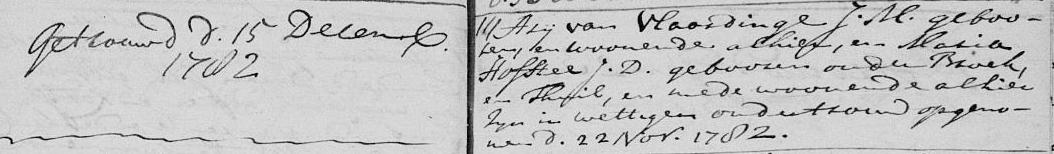 Getrouwd d. 15 Decemb.
1782
Arij van Vlaardinge J. M. geboo-
ren, en woonende alhier, en Maria
Hofstee J. D. gebooren onder Broek,
en Thuil, en mede woonende alhier
zijn in wettigen ondertrouw opgeno-
men d. 22 Nov. 1782.